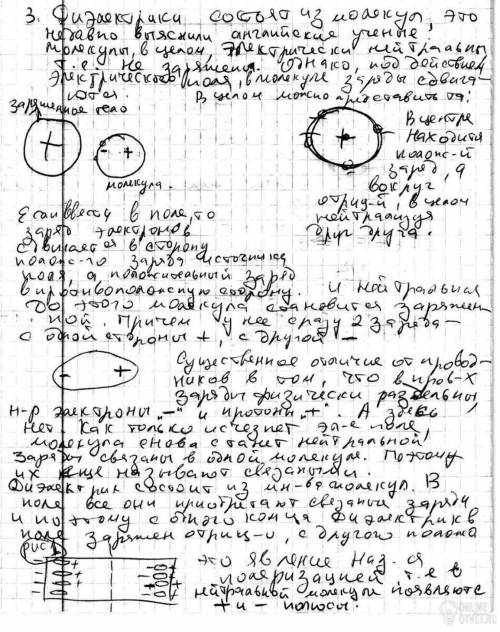 3. Диэлектрики состоят из молекул, это
недавно выяснили английские ученые,
молекулы, в целом, электрически нейтральны
т.е. не заряжены. Однако, под действием
электрического поля, в молекуле заряды сдвига-
ются.
В целом можно представить так:
заряженное тело
+
- +
молекула.
+
В центре
находится
полож-й
заряд, а
вокруг
отриц-й, в целом
нейтрализуя
друг друга.
Если ввести в поле, то
заряд электронов
сдвигается в сторону
полож-го заряда источника
поля, а положительный заряд
в противоположную сторону. И нейтральная
до этого молекула становится заряжен-
ной. Причем у нее сразу 2 заряда-
с одной стороны +, с другой -
- +
Существенное отличие от провод-
ников в том, что в пров-х
заряды физически раздельны,
н-р электроны „-" и протоны „+". А здесь
нет. Как только исчезнет эл-е поле,
молекула снова станет нейтральной!
Заряды связаны в одной молекуле. Поэтому
их еще называют связаными.
Диэлектрик состоит из мн-ва молекул. В
поле все они приобретают связаный заряд
и поэтому с одного конца диэлектрик в
поле заряжен отриц-о, с другого полож
рис
это явление наз-ся
поляризацией т.е в
нейтральной молекуле появляются
+ и - полюсы.
ONLINE
OTVET.RU